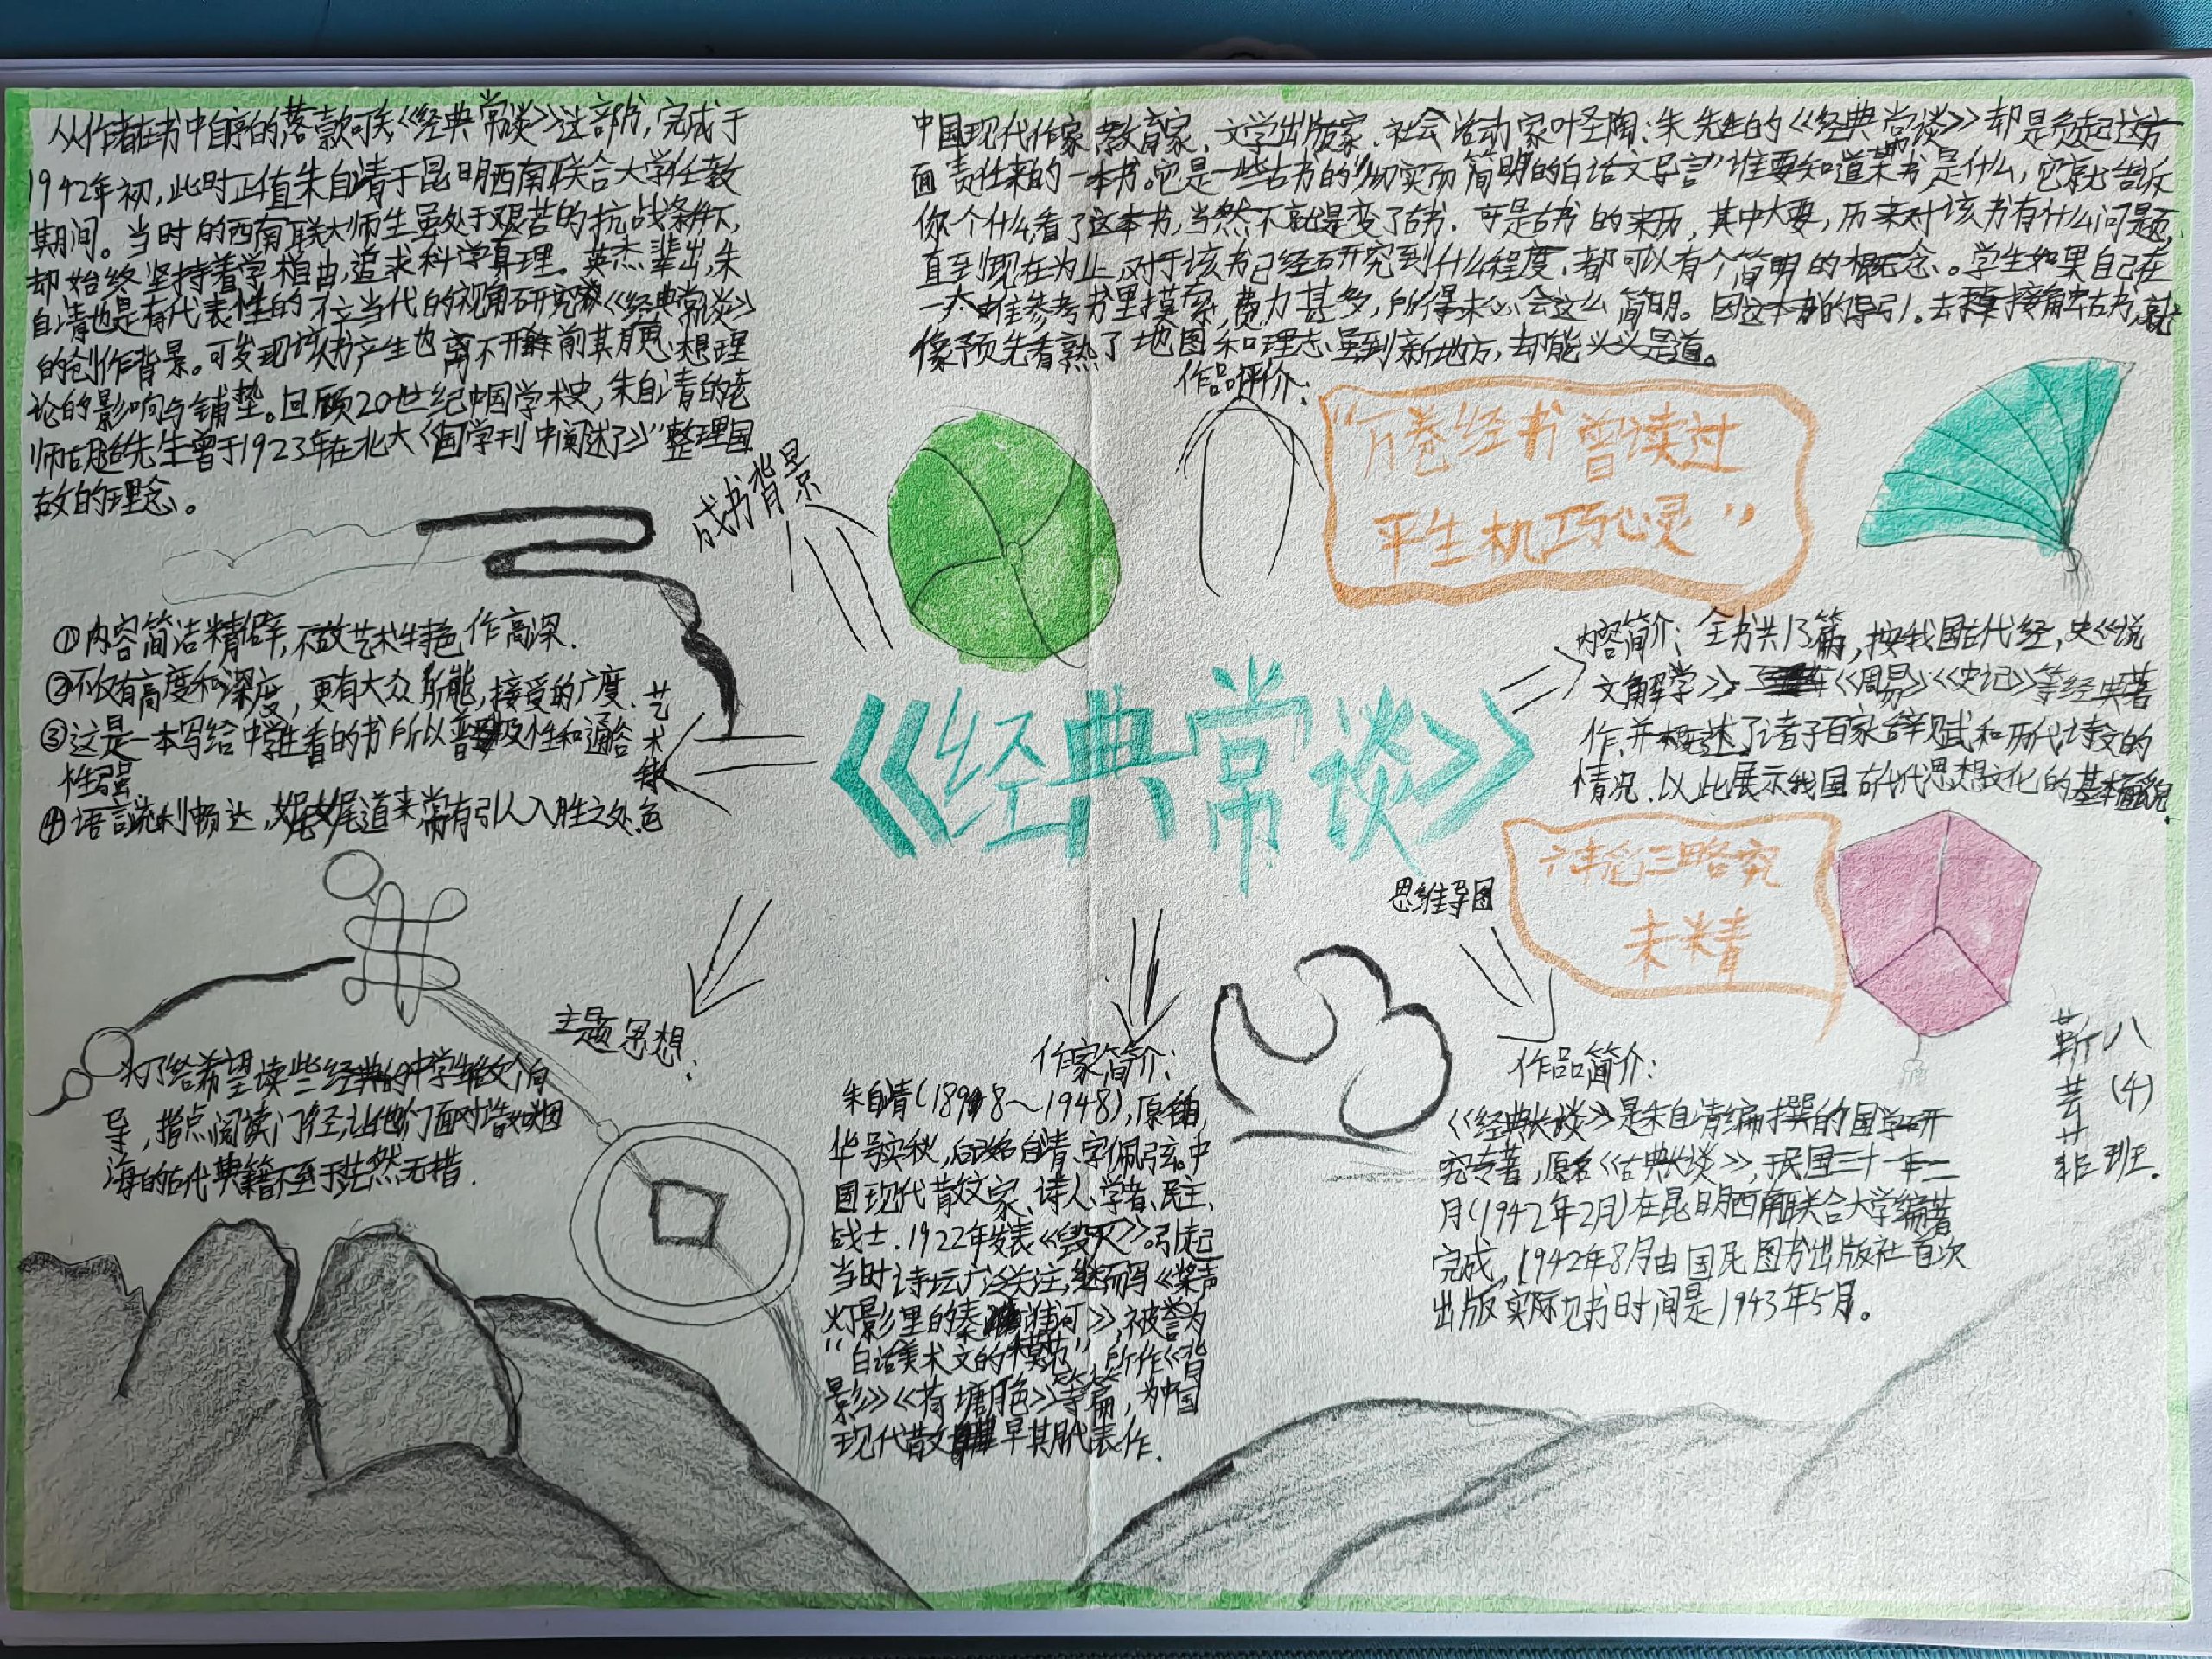 从作者在书中自序的落款可知《经典常谈》这部书,完成于
1942年初,此时正值朱自清于昆明西南联合大学任教
期间。当时的西南联大师生虽处于艰苦的抗战条件下,
却始终坚持着学术自由,追求科学真理。英杰辈出,朱
自清也是有代表性的 立当代的视角研究《经典常谈》
的创作背景。可发现该书产生也离不开前其思想理
论的影响与铺垫。回顾20世纪中国学术史,朱自清的老
师胡适先生曾于1923年在北大《国学刊 中阐述了》"整理国
故的理念。
成书背景
中国现代作家、教育家、文学出版家、社会活动家叶圣陶:朱先生的《经典常谈》却是负起这方
面责任来的一本书。它是一些古书的"切实而简明的白话文导言"谁要知道某书是什么,它就告诉
你个什么,看了这本书,当然不就是变了古书.可是古书的来历,其中大要,历来对该书有什么问题,
直到现在为止,对于该书已经研究到什么程度、都可以有个简明的概念。学生如果自己在
一大堆参考书里摸索,费力甚多,所得未必会这么简明。因这本书的导引。去接触古书,就
像预先看熟了地图和地理志,虽到新地方,却能头头是道。
作品评价:
"万卷经书曾读过
平生机巧心灵"
①内容简洁精僻,不故艺术特色作高深.
②不仅有高度和深度,更有大众所能,接受的广度.
③这是一本写给中学生看的书所以普及性和通俗
性强
④语言流利畅达,娓娓道来,常有引人入胜之处.
艺术特色
《经典常谈》
内容简介:全书共13篇,按我国古代经,史《说
文解字》 《周易》《史记》等经典著
作,并概述了诸子百家辞赋和历代诗文的
情况.以此展示我国古代思想文化的基本面貌.
六韬三略究
未精
思维导图
主题思想:
为了给希望读些经典的中学生做个向
导,指点阅读门径,让他们面对浩如烟
海的古代典籍不至于茫然无措.
作家简介:
朱自清(1898~1948),原名自
华号实秋,后改名自清、字佩弦。中
国现代散文家、诗人、学者、民主、
战士.1922年发表《毁灭》。引起
当时诗坛广泛关注,继而写《桨声
灯影里的秦淮河》,被誉为
"白话美术文的模范",所作《背
影》《荷塘月色》等篇,为中国
现代散文早期代表作.
作品简介:
《经典长谈》是朱自清编撰的国学研
究专著,原名《古典长谈》,于民国三十一年二
月(1942年2月)在昆明西南联合大学编著
完成,1942年8月由国民图书出版社首次
出版实际见书时间是1943年5月。
八(4)班.
靳芸菲